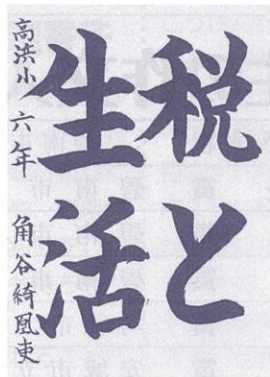 税と
生活
高浜小 六年 角谷綺凰吏